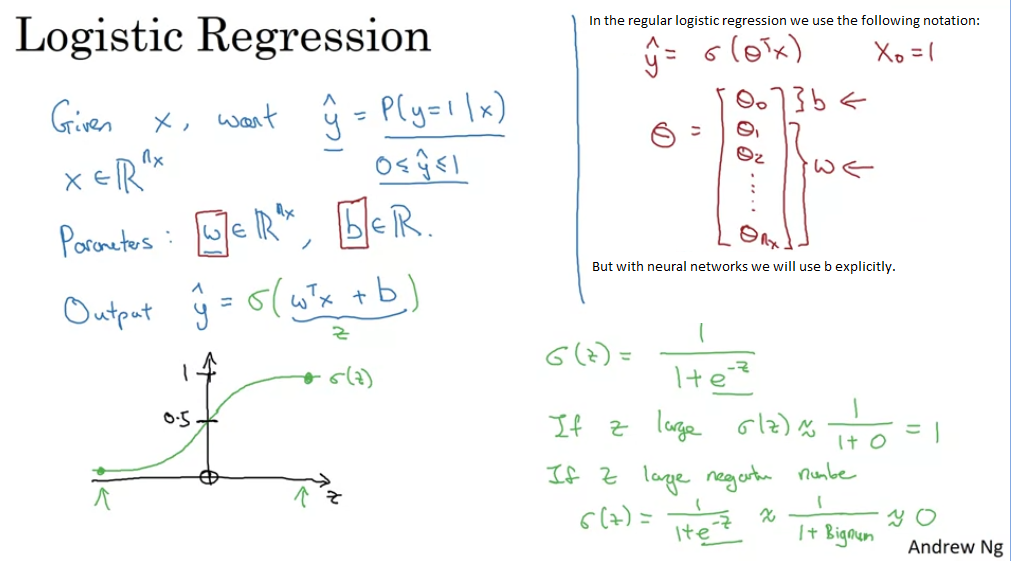 Logistic Regression
Given x, want ŷ = P(y=1 | x)
x ∈ ℝ^{n_x}
0 ≤ ŷ ≤ 1
Parameters: w ∈ ℝ^{n_x}, b ∈ ℝ.
Output ŷ = σ(wᵀx + b)
z
1
σ(z)
0.5
z
In the regular logistic regression we use the following notation:
ŷ = σ(θᵀx) x₀ = 1
θ = [θ₀ } b ←
θ₁
θ₂ } w ←
⋮
θ_{n_x}]
But with neural networks we will use b explicitly.
σ(z) = 1 / (1 + e^{-z})
If z large σ(z) ≈ 1 / (1 + 0) = 1
If z large negative number
σ(z) = 1 / (1 + e^{-z}) ≈ 1 / (1 + Bignum) ≈ 0
Andrew Ng